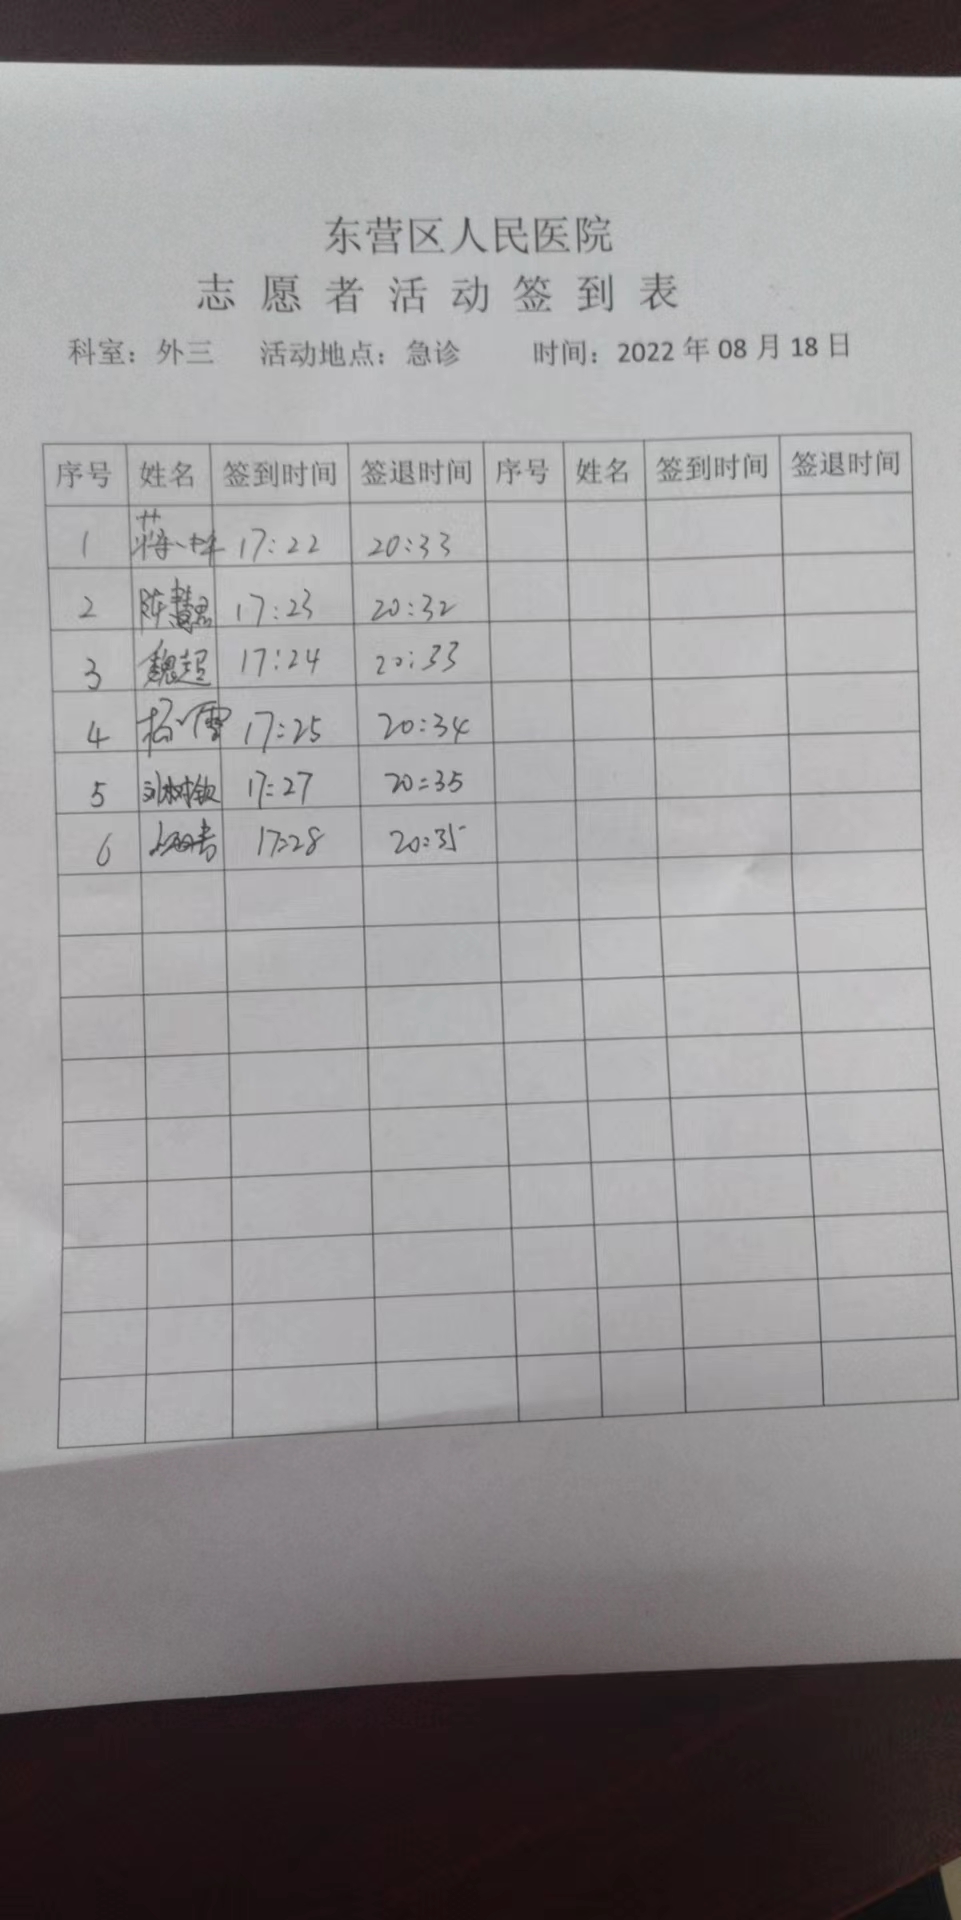 东营区人民医院
志愿者活动签到表
科室：外三 活动地点：急诊 时间：2022年08月18日
序号 姓名 签到时间 签退时间 序号 姓名 签到时间 签退时间
1 17:22 20:33
2 陈慧君 17:23 20:32
3 魏超 17:24 20:33
4 杨雪 17:25 20:34
5 刘树钦 17:27 20:35
6 17:28 20:35